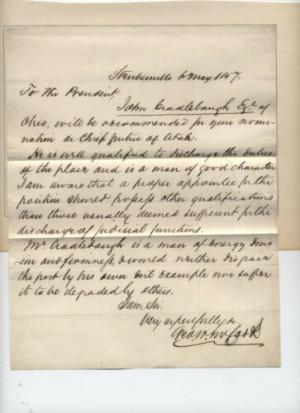 Steubenville 6 May 1857.
To the President,
John Cradlebaugh Esq of
Ohio, will be recommended for your nomi-
nation as Chief Justice of Utah.
He is well qualified to discharge the duties
of the place and is a man of good character
I am aware that a proper appointee for the
position should possess other qualifications
than those usually deemed sufficient for the
discharge of judicial functions.
Mr Cradlebaugh is a man of energy decis-
ion and firmness, & would neither disgrace
the post by his own evil example nor suffer
it to be degraded by others.
I am Sir
Very respectfully
Geo W. McCook